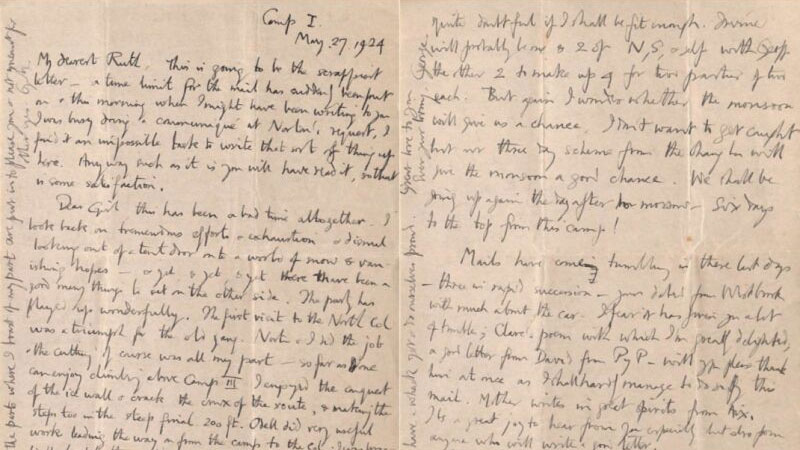 Camp I.
May 27. 1924
My dearest Ruth. This is going to be the scrappiest
letter – a time limit for the mail has suddenly been put
on & this morning when I might have been writing to you
I was busy doing a communiqué at Norton's request, I
find it an impossible task to write that sort of thing up
here. Anyway such as it is you will have read it, so that
is some satisfaction.
Dear Girl, this has been a bad time altogether. I
look back on tremendous efforts & exhaustion & dismal
looking out of a tent door onto a world of snow & van-
ishing hopes – & yet, & yet, & yet there have been a
good many things to set on the other side. The party has
played up wonderfully. The first visit to the North Col
was a triumph for the old gang. Norton & I did the job
& the cutting of course was all my part – so far as one
can enjoy climbing above Camp III I enjoyed the conquest
of the ice wall & crack, the crux of the route, & making the
steps too in the steep final 200 ft. Odell did very useful
work leading the way on from the camp to the Col.
the parts where I boast of my part are put in to please you & not meant for
quite doubtful if I shall be fit enough. Irvine
will probably be one & 2 of N, S, & self with Geoff
the other 2 to make up for two parties of two
each. But again I wonder whether the monsoon
will give us a chance. I don't want to get caught
but our three day scheme from the Chang La will
give the monsoon a good chance. We shall be
going up again the day after tomorrow – Six days
to the top from this camp!
Mails have come tumbling in these last days
– three in rapid succession – your dated from Westbrook
with much about the car. I fear it has given you a lot
of trouble; Clare's poem with which I'm greatly delighted,
a good letter from David from Py P – will you please thank
him at once as I shall hardly manage to do so by this
mail. Mother writes in good spirits from Aix.
It's a great joy to hear from you especially but also from
anyone who will write a good letter.
Great love to you
Ever your loving George.